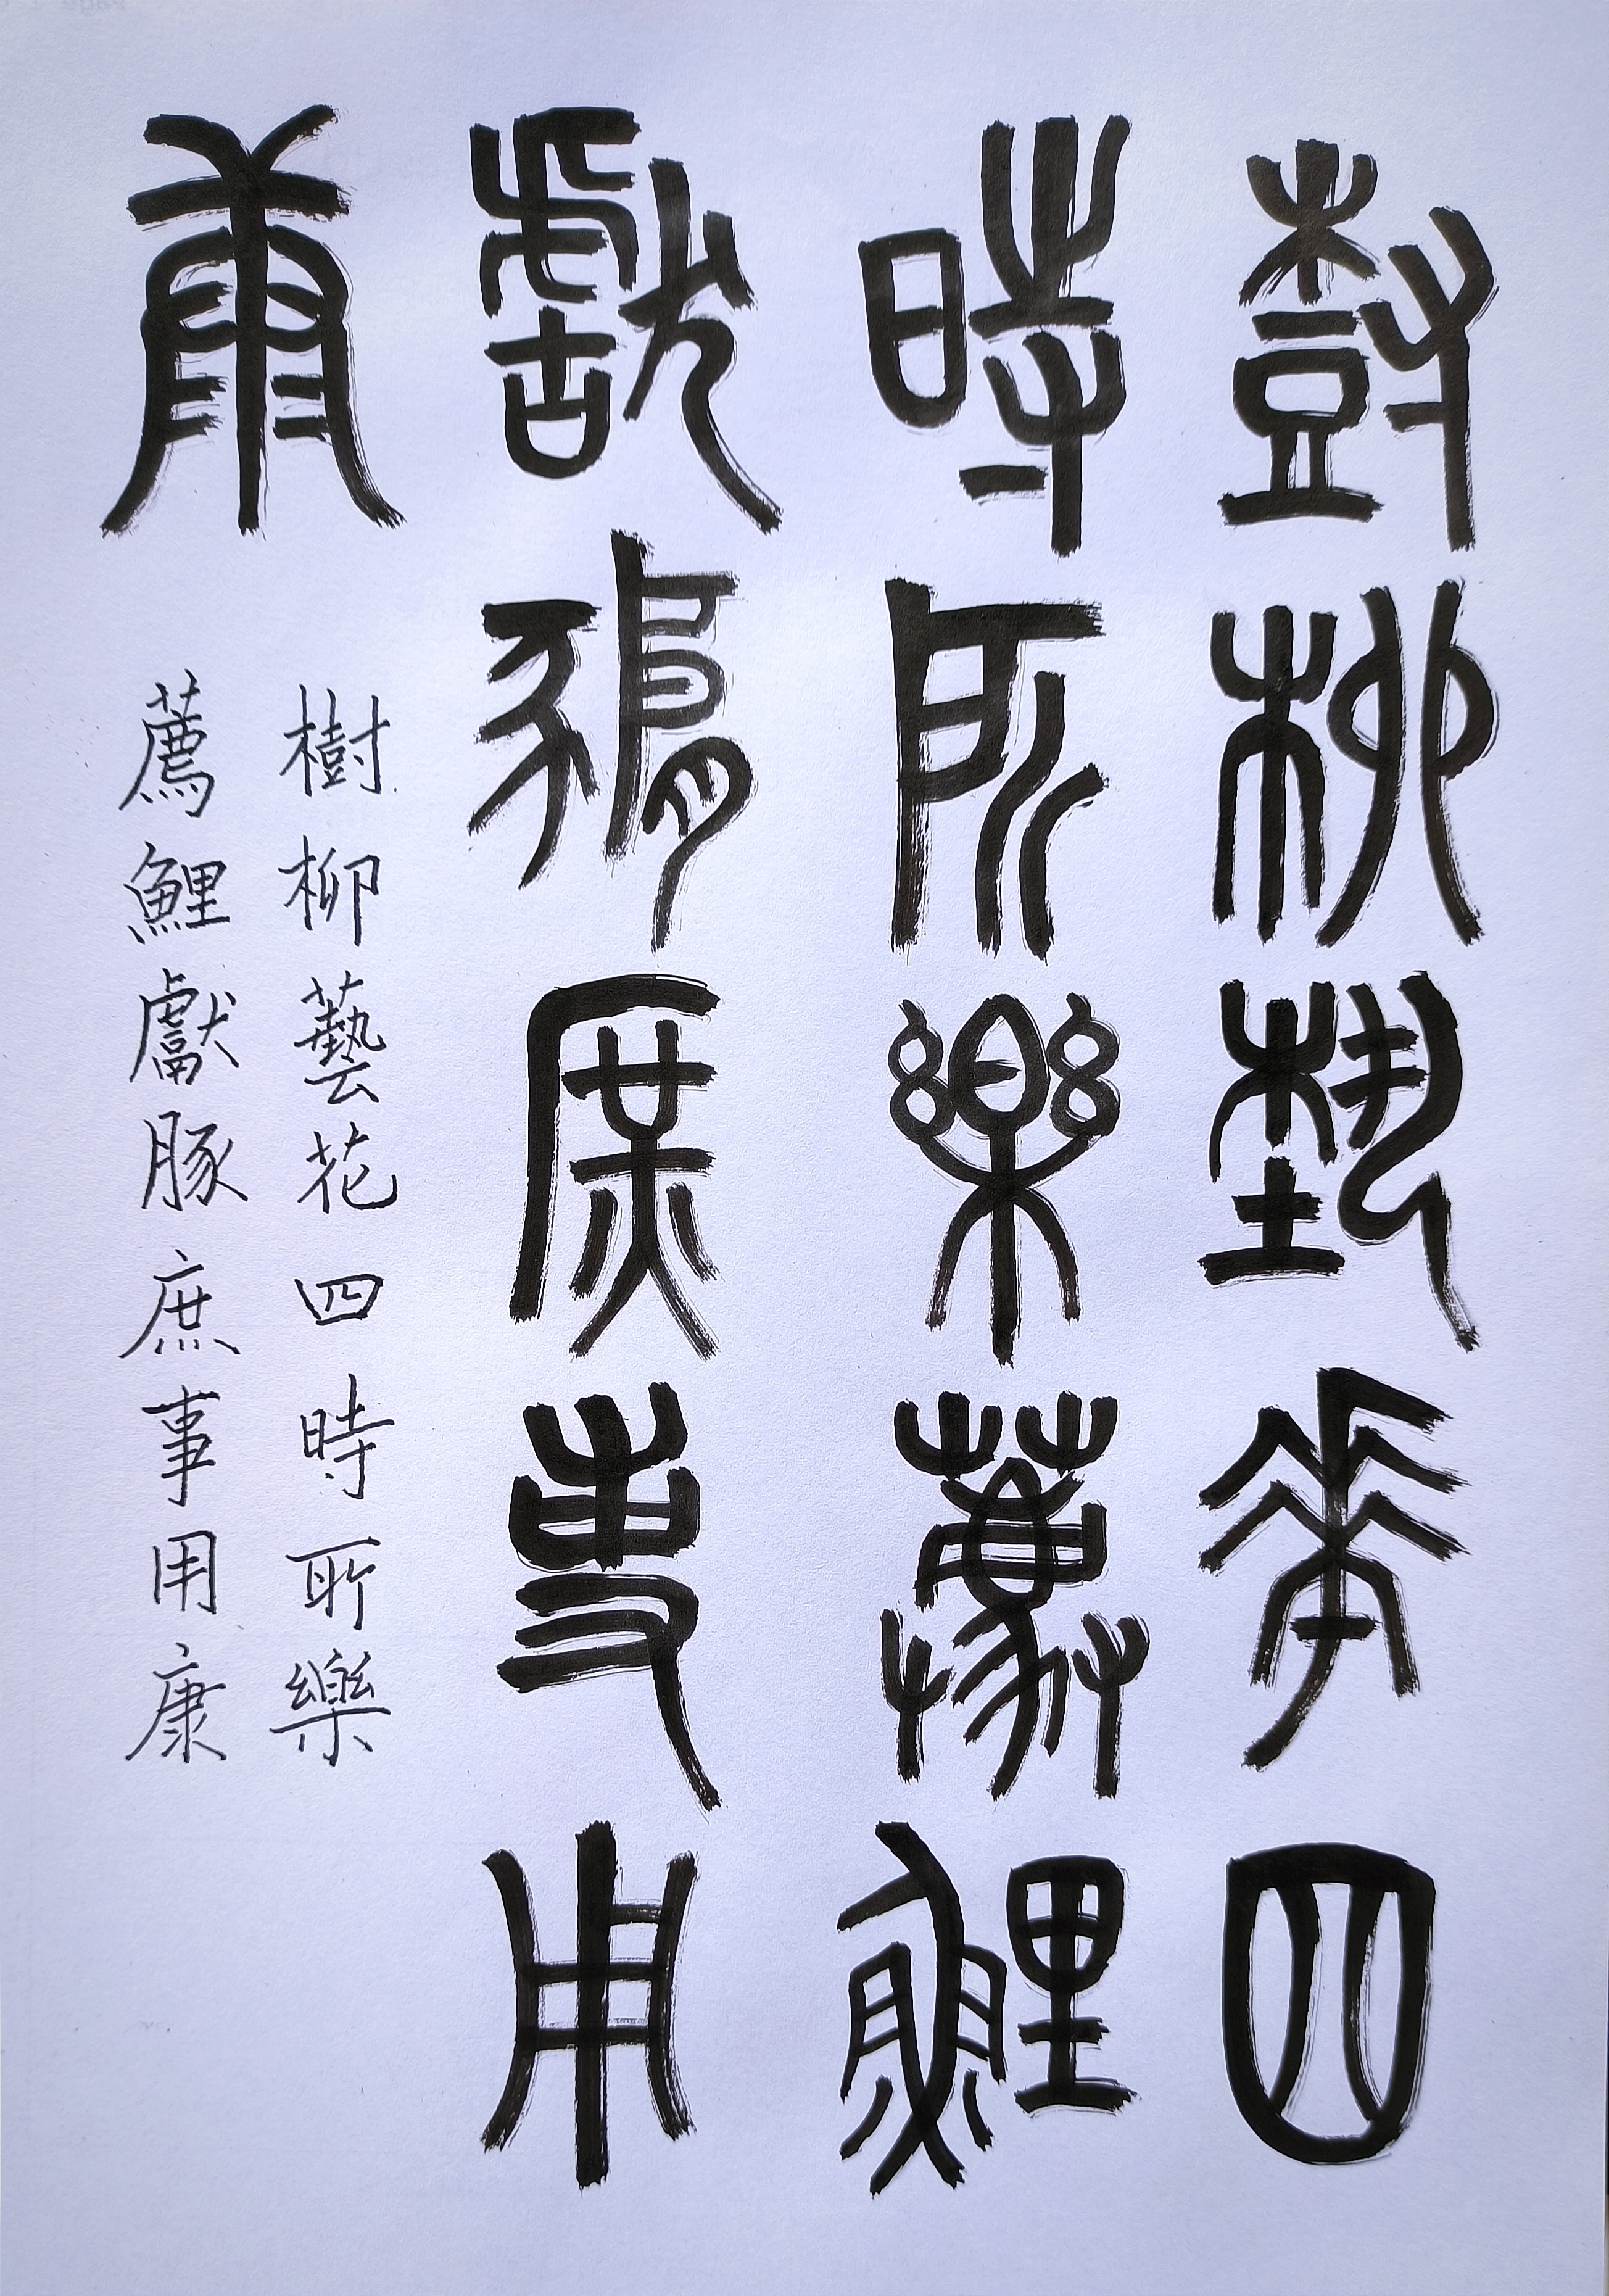 樹柳藝花四
時所樂薦鯉
獻豚庶事用
康
樹柳藝花四時所樂
薦鯉獻豚庶事用康